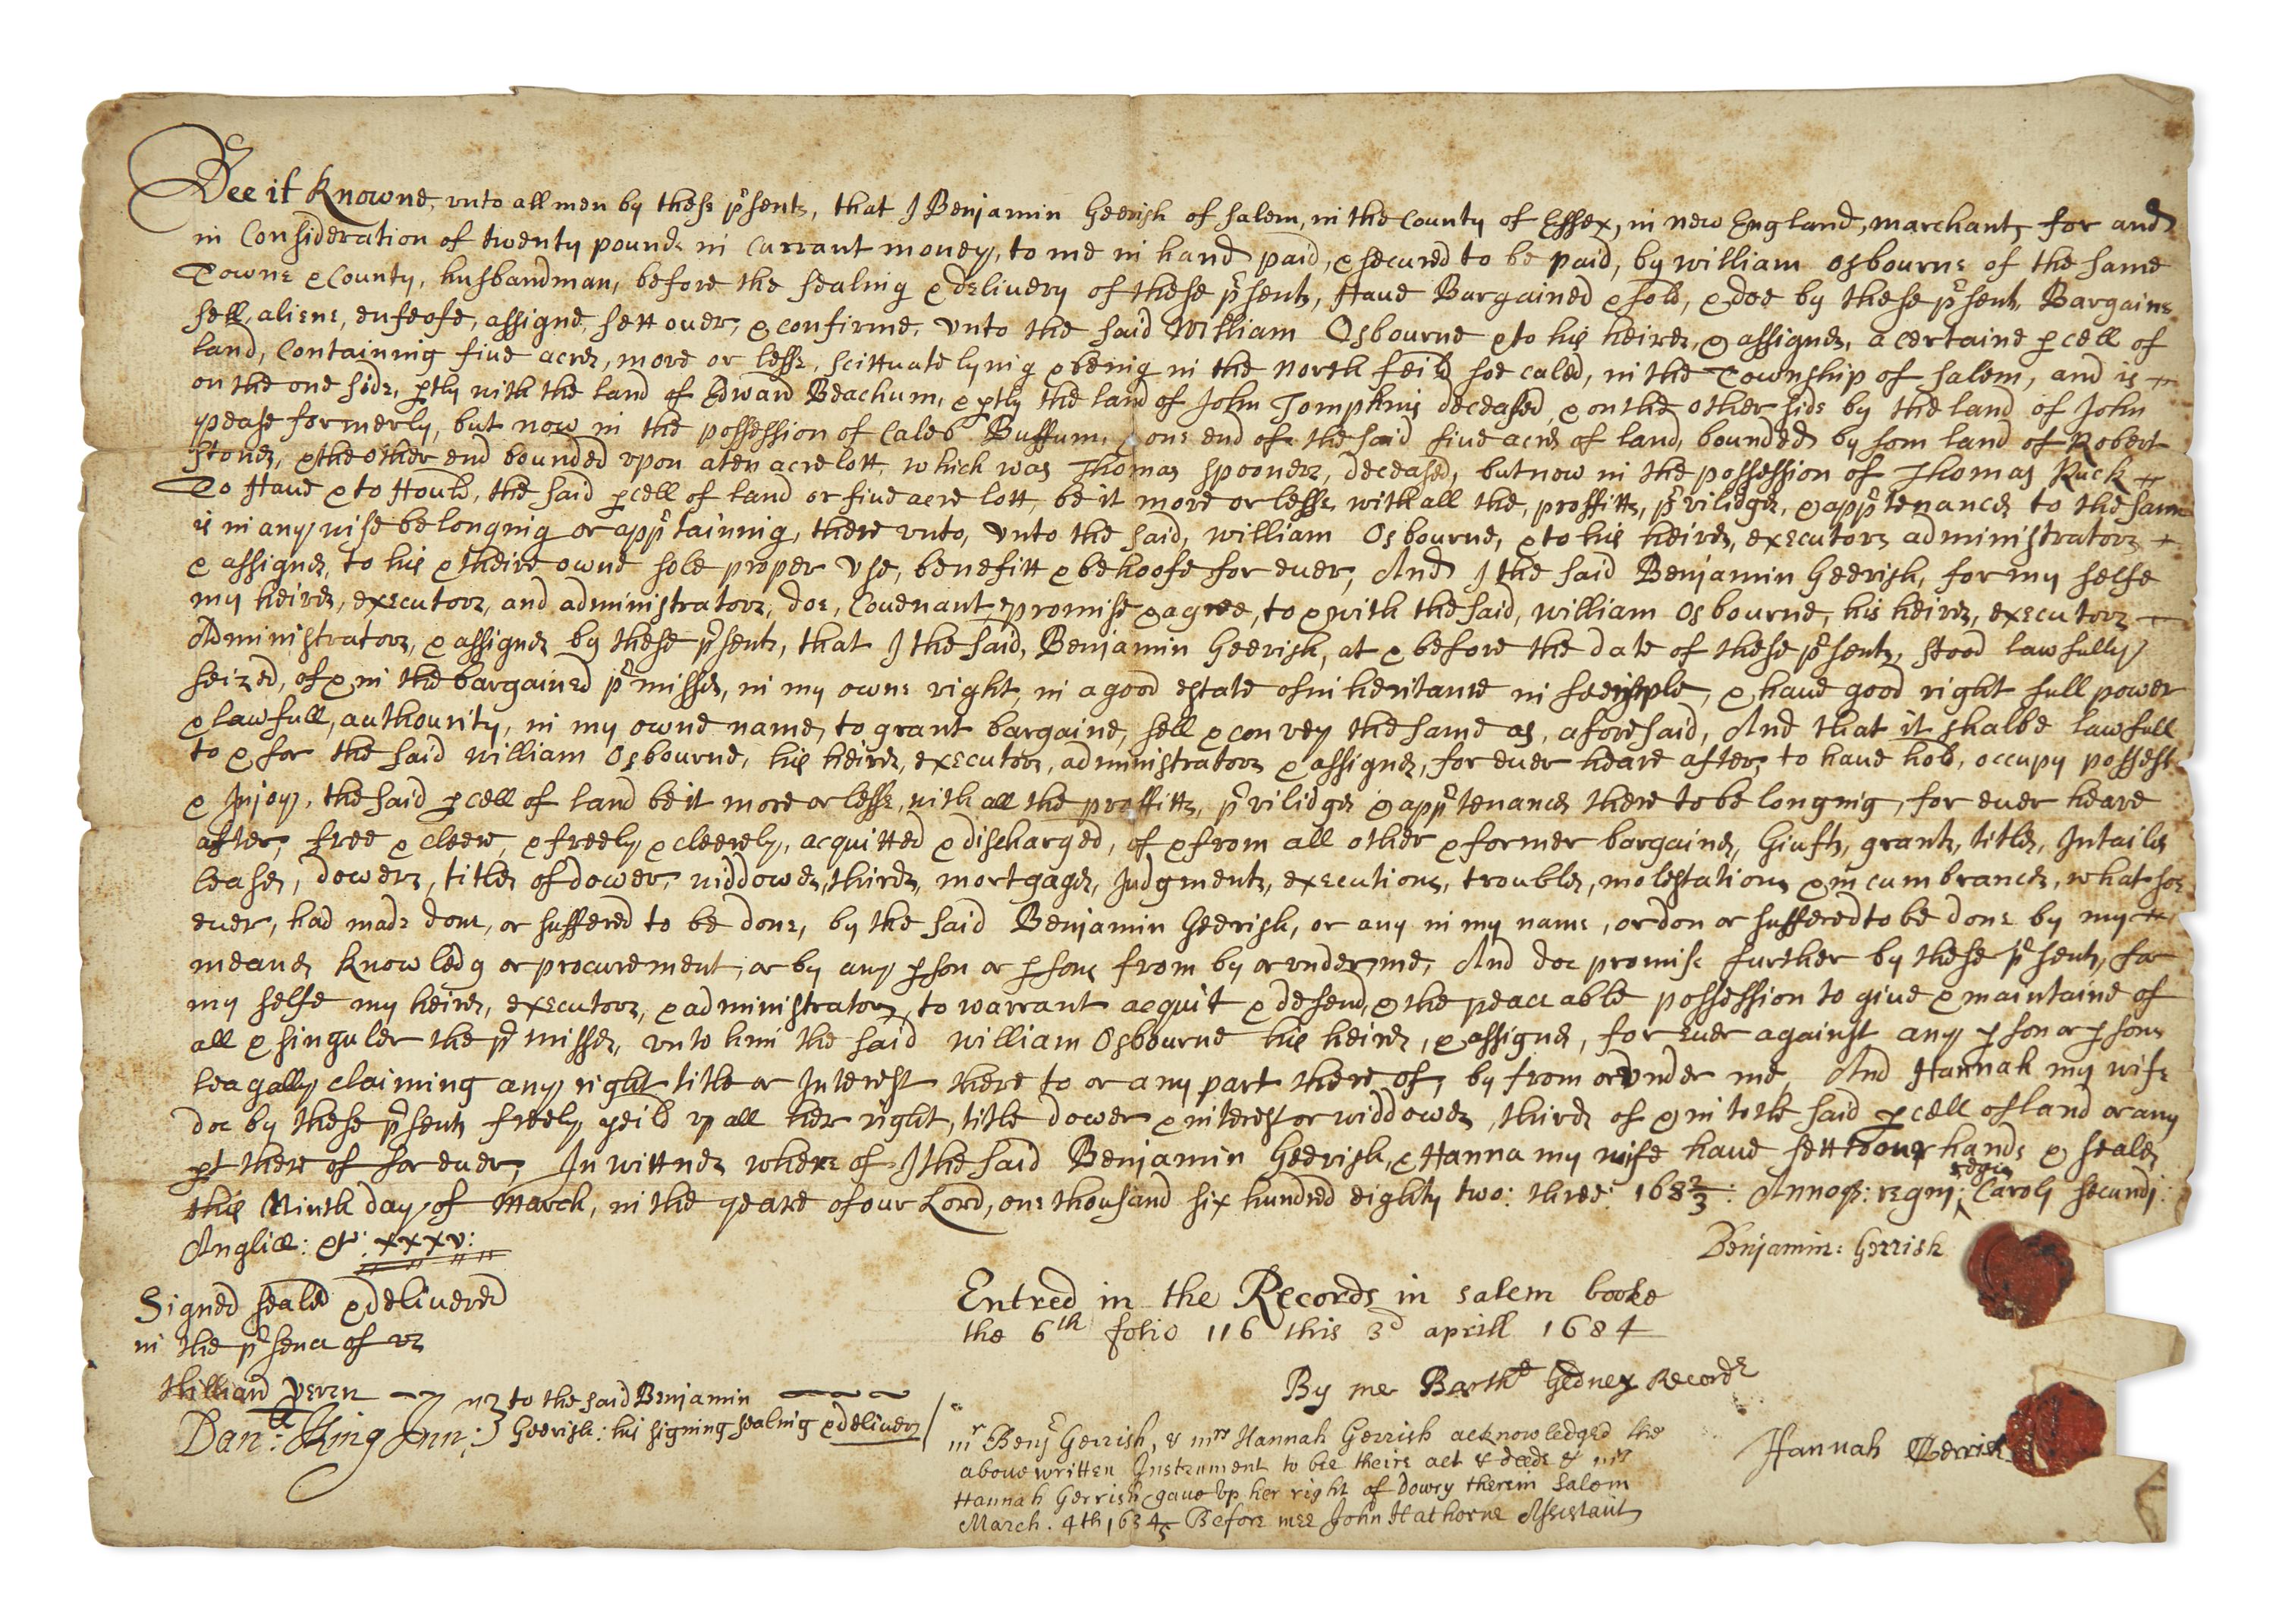 Bee it Knowne, vnto all men by these p^rsents, that I Benjamin Geerish of salem, in the County of Essex, in new England, marchant, for and
in Consideration of twenty pounds in Currant money, to me in hand paid, & secured to be paid, by william osbourne of the same
Towne & County, husbandman, before the sealing & deliuery of these p^rsents, Haue Bargained & sold, & doe by these p^rsents Bargaine
sell, aliene, enfeofe, assigne, sett ouer, & confirme, vnto the said William Osbourne & to his heires, & assignes, a certaine pcell of
land, Containing fiue acres, more or lesse, scittuate lying & being in the North feild soe caled, in the Township of salem, and is
on the one side, ptly with the land of Edward Beachum, & ptly the land of John Tompkins deceased, & on the other side by the land of John
pease formerly, but now in the possession of Caleb Buffum, & one end of the said fiue acres of land, bounded by som land of Robert
Stones, & the other end bounded vpon a ten acre lott, which was Thomas spooners, deceased, but now in the possession of Thomas Ruck
To Haue & to Hould, the said pcell of land or fiue acre lott, be it more or lesse, with all the, proffitts, p^rvilidges, & app^rtenances to the same
is in any wise belonging or app^rtaining, there vnto, vnto the said, william Osbourne, & to his heires, executors administrators
& assignes, to his & theire owne sole proper vse, benefitt & behoofe for euer, And I the said Benjamin Geerish, for my selfe
my heires, executors, and administrators, doe, Couenant promise & agree, to & with the said, william osbourne, his heires, executors
Administrators, & assignes by these p^rsents, that I the said, Benjamin Geerish, at & before the date of these p^rsents, stood lawfully
seized, of & in the bargained p^rmisses, in my owne right, in a good estate of inheritance in fee simple, & haue good right full power
& lawfull, authourity, in my owne name, to grant bargaine, sell & convey the same as, aforesaid, And that it shalbe lawfull
to & for the said william Osbourne, his heires, executors, administrators & assignes, for euer heare after, to haue hold, occupy possess
& Injoy, the said pcell of land be it more or lesse, with all the proffitts, p^rvilidges & app^rtenances there to belonging, for euer heare
after, free & cleere, & freely, & cleerely, acquitted & discharged, of & from all other & former bargaines, Giufts, grants, titles, Intailes
leases, dowers, titles of dower, widdowes, thirds, mortgages, Judgments, executions, troubles, molestations & incumbrances, what soe
euer, had made done, or suffered to be done, by the said Benjamin Geerish, or any in my name, or don or suffered to be done by my
meanes knowledg or procurement, or by any pson or psons from by or vnder me, And doe promise further by these p^rsents, for
my selfe my heires, executors, & administrators, to warrant acquit & defend, & the peaceable possession to giue & maintaine of
all & singuler the p^rmisses, vnto him the said william Osbourne his heires, & assignes, for euer against any pson or psons
leagally claiming any right title or Interest there to or any part there of, by from or vnder me, And Hannah my wife
doe by these p^rsents freely yeild vp all her right, title dower & interest or widdowes, thirds of & in to the said pcell of land or any
pt there of for euer, In wittnes where of I the said Benjamin Geerish, & Hanna my wife haue sett to our hands & seales
this Ninth day of March, in the yeare of our Lord, one thousand six hundred eighty two: three: 168 2/3: Annoq: regni regis Caroli secundi:
Angliæ: &c: xxxv:
Benjamin: Gerrish
Signed sealed & deliuered
in the p^rsence of vs
Hilliard veren
Dan: King Jun:
to the said Benjamin
Geerish: his signing sealing & deliuery
Entred in the Records in salem booke
the 6th folio 116 this 3d aprill 1684
By me Barth^o Gedney Record^r
m^r Benj Gerrish, & m^rs Hannah Gerrish acknowledged the
aboue written Instrument to bee theire act & deede & m^rs
Hannah Gerrish gaue vp her right of dowry therein Salem
March. 4th 168 4/5 Before mee John Hathorne Assistant
Hannah Gerrish